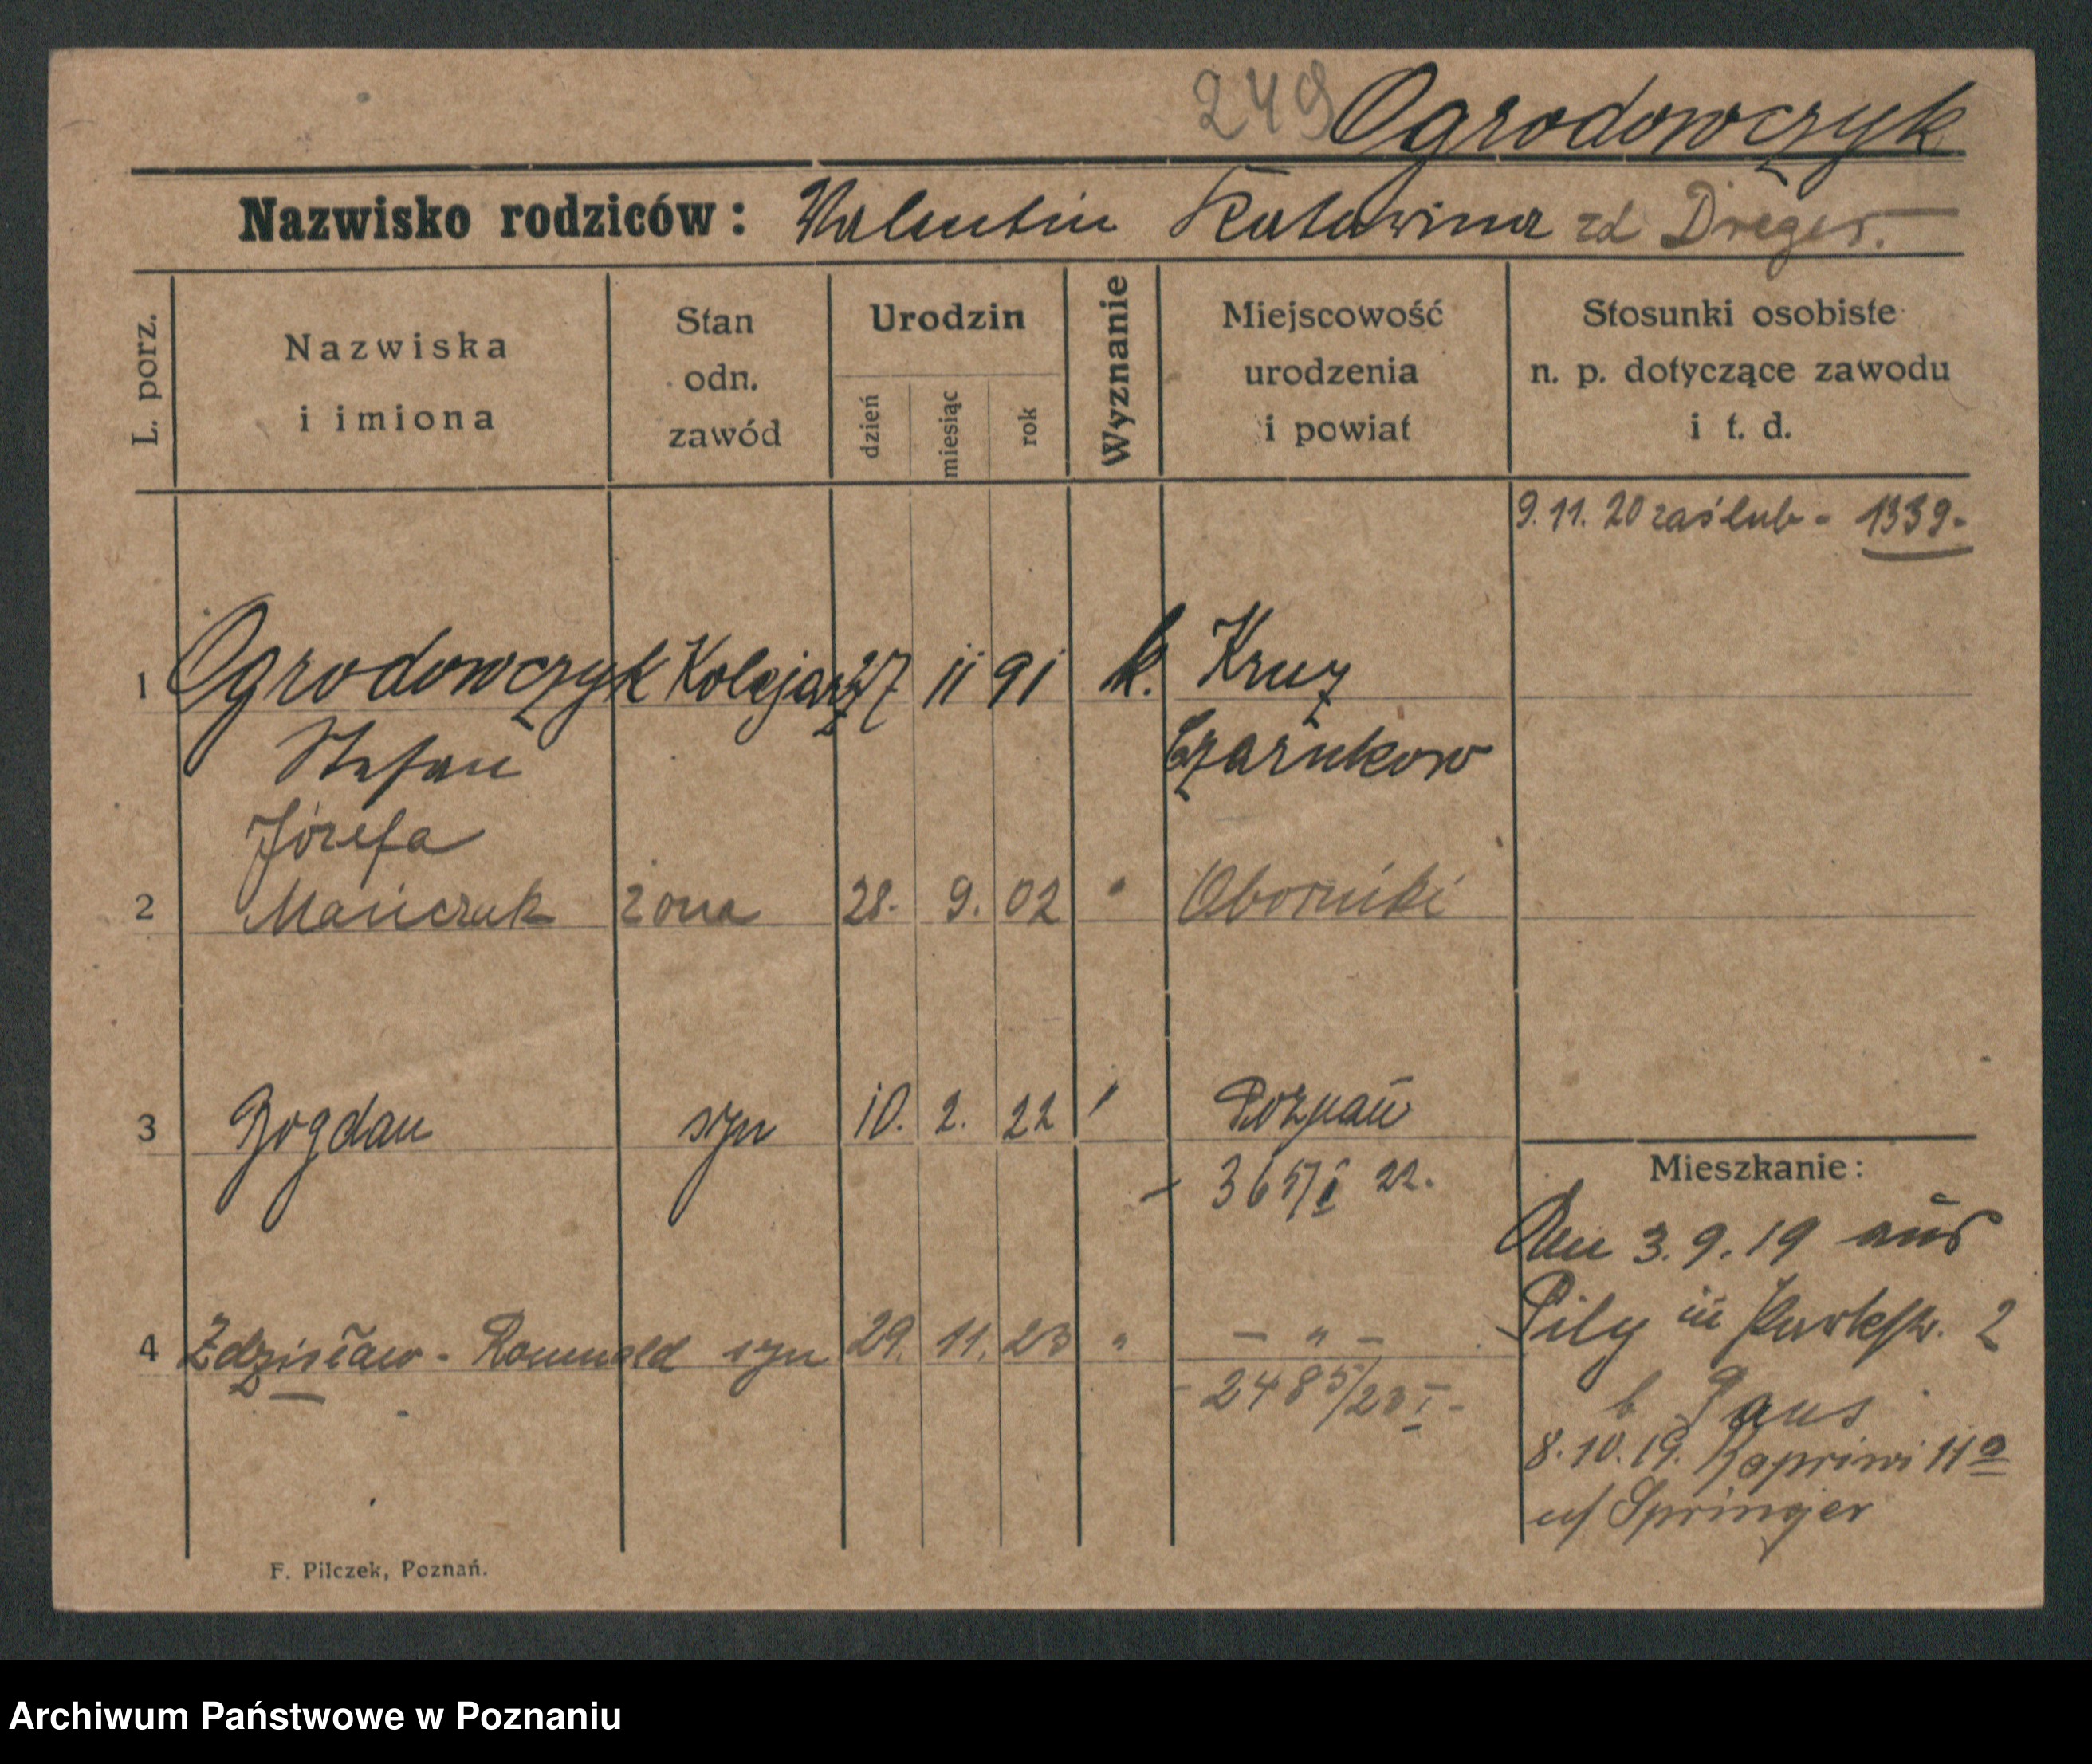 249 Ogrodowczyk
Nazwisko rodziców: Valentin Katarina zd Dreger.
L. porz.
Nazwiska
i imiona
Stan
odn.
zawód
Urodzin
dzień
miesiąc
rok
Wyznanie
Miejscowość
urodzenia
i powiat
Stosunki osobiste
n. p. dotyczące zawodu
i t. d.
9. 11. 20 zaślub - 1339-
1 Ogrodowczyk Kolejarz 27 11 91 k. Kruz
Stefan Czarnkow
Józefa
2 Mańczak żona 28. 9. 02 " Oborniki
3 Bogdan syn 10. 2. 22 " Poznań
- 365/I 22.
4 Zdzisław - Romuald syn 29. 11. 23 " - " -
- 2485/23 I -
Mieszkanie:
Den 3. 9. 19 aus
Pily in Parkstr. 2
b
8. 10. 19. Kapriwi 11a
b/ Springer
F. Pilczek, Poznań.
Archiwum Państwowe w Poznaniu